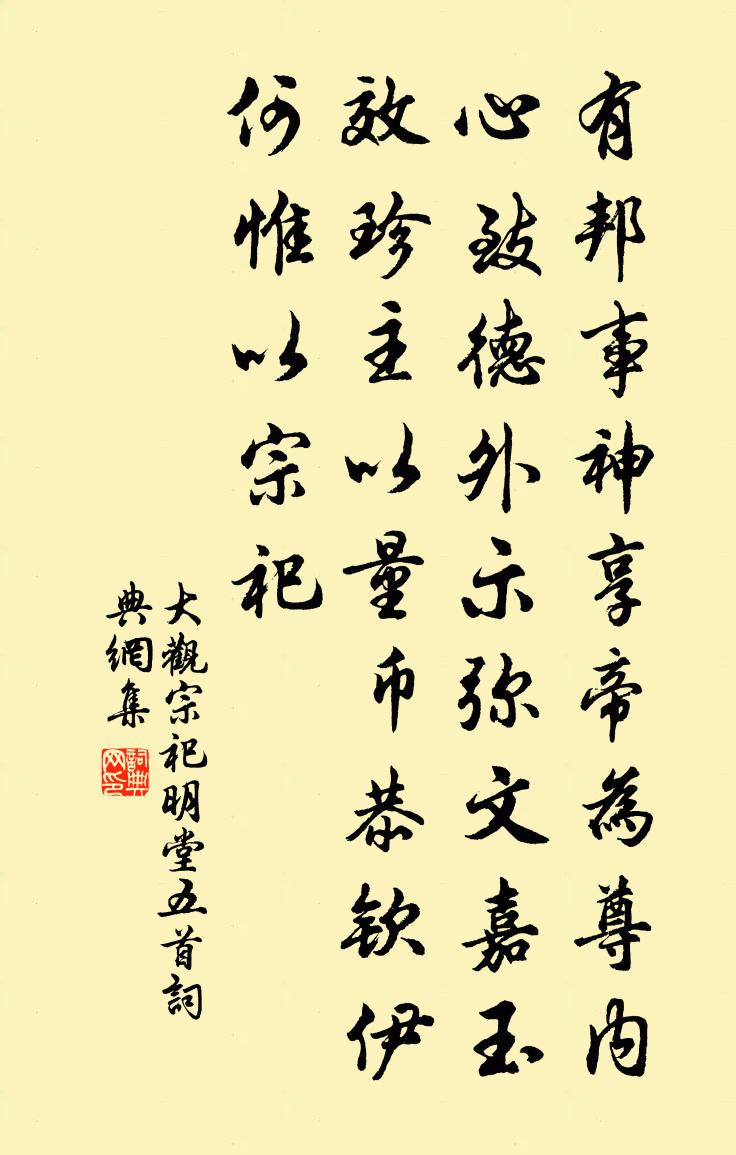 有邦事神享帝為尊内
心致德外示弥文嘉玉
效珍主以量币恭欽伊
何惟以宗祀
大觀宗祀明堂五首詞
典網集
詞典网印